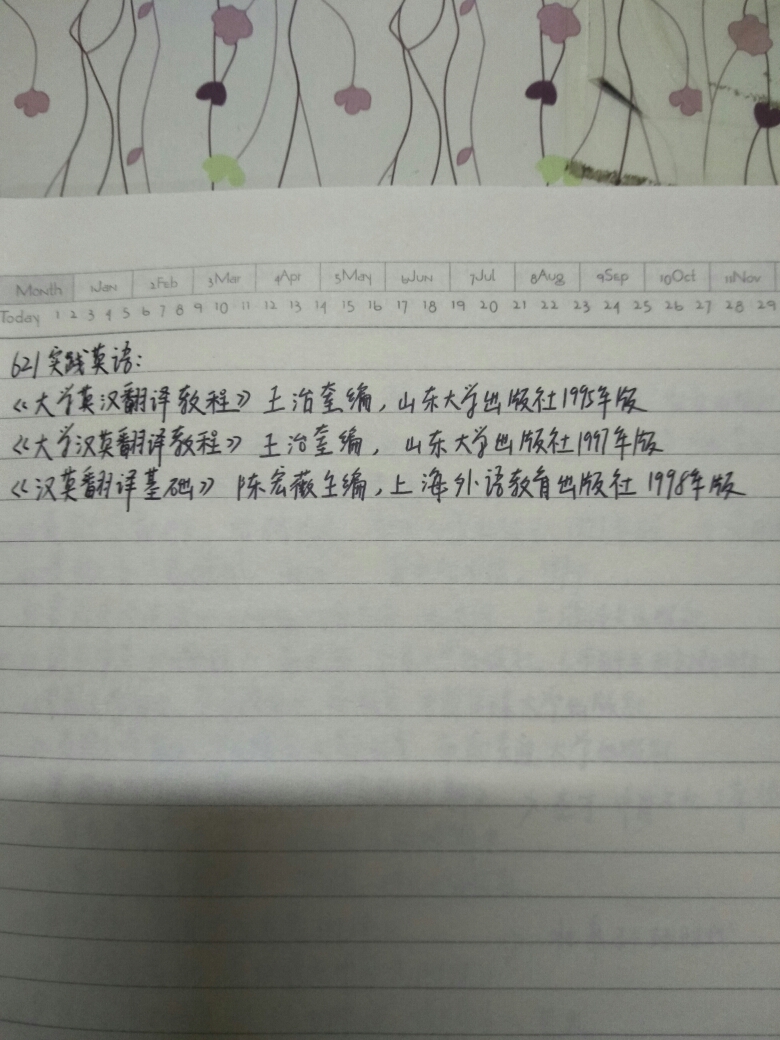 Month 1Jan 2Feb 3Mar 4Apr 5May 6Jun 7Jul 8Aug 9Sep 10Oct 11Nov
Today 1 2 3 4 5 6 7 8 9 10 11 12 13 14 15 16 17 18 19 20 21 22 23 24 25 26 27 28 29
621实践英语:
《大学英汉翻译教程》王治奎编,山东大学出版社1995年版
《大学汉英翻译教程》王治奎编,山东大学出版社1997年版
《汉英翻译基础》陈宏薇主编,上海外语教育出版社1998年版